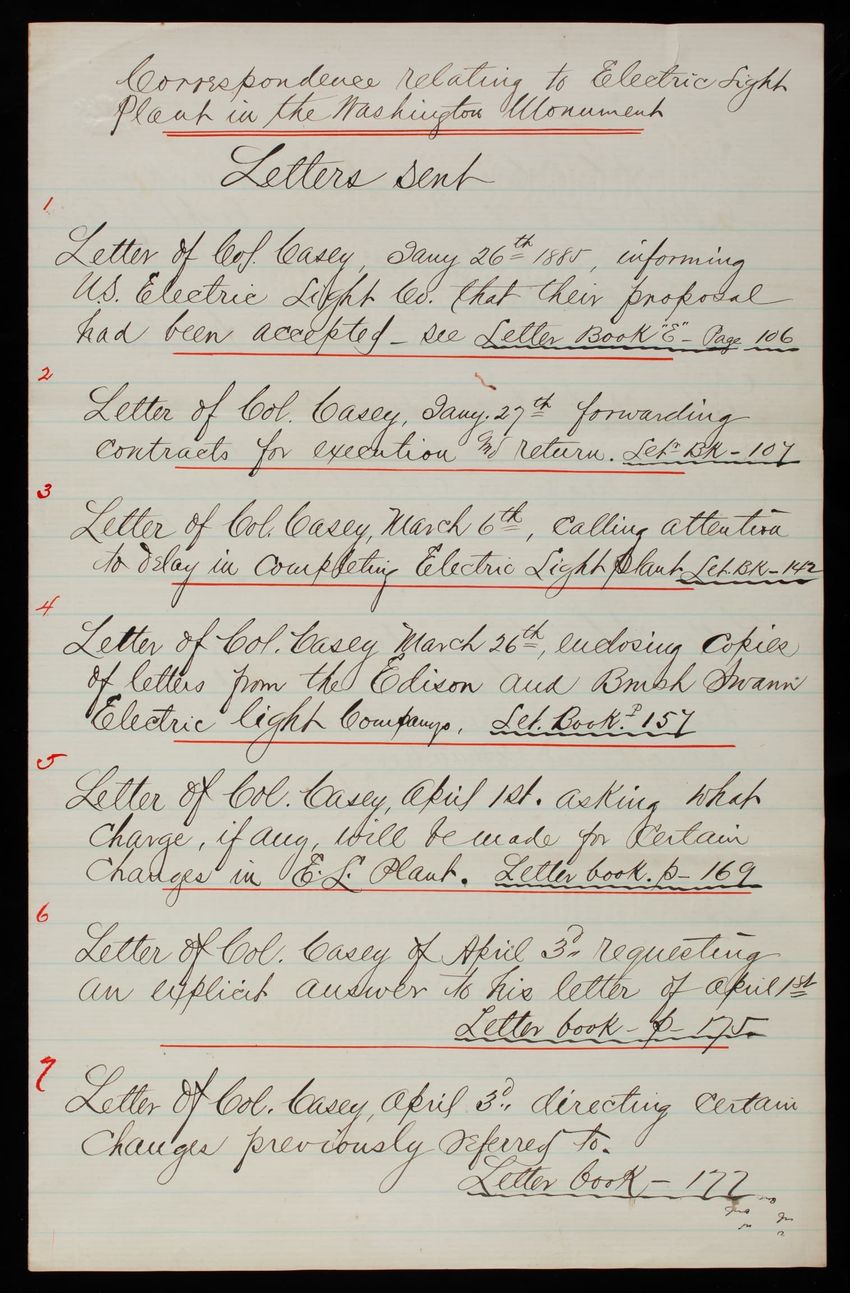 Correspondence relating to Electric Light
Plant in the Washington Monument
Letters sent
1
Letter of Col. Casey, Jany 26th 1885, informing
U.S. Electric Light Co. that their proposal
had been accepted - see Letter Book "E" - Page 106
2
Letter of Col. Casey, Jany. 27th forwarding
contracts for execution and return. Letr Bk - 107
3
Letter of Col. Casey, March 6th, calling attention
to delay in completing Electric Light Plant Let. Bk - 142
4
Letter of Col. Casey March 26th, enclosing copies
of letters from the Edison and Brush Swann
Electric light Companys, Let. Book. P 157
5
Letter of Col. Casey, April 1st. asking what
charge, if any, will be made for certain
changes in E. L. Plant. Letter book. p - 169
6
Letter of Col. Casey of April 3d. requesting
an explicit answer to his letter of April 1st
Letter book - p - 175
7
Letter of Col. Casey, April 3d., directing certain
changes previously referred to.
Letter book - 177